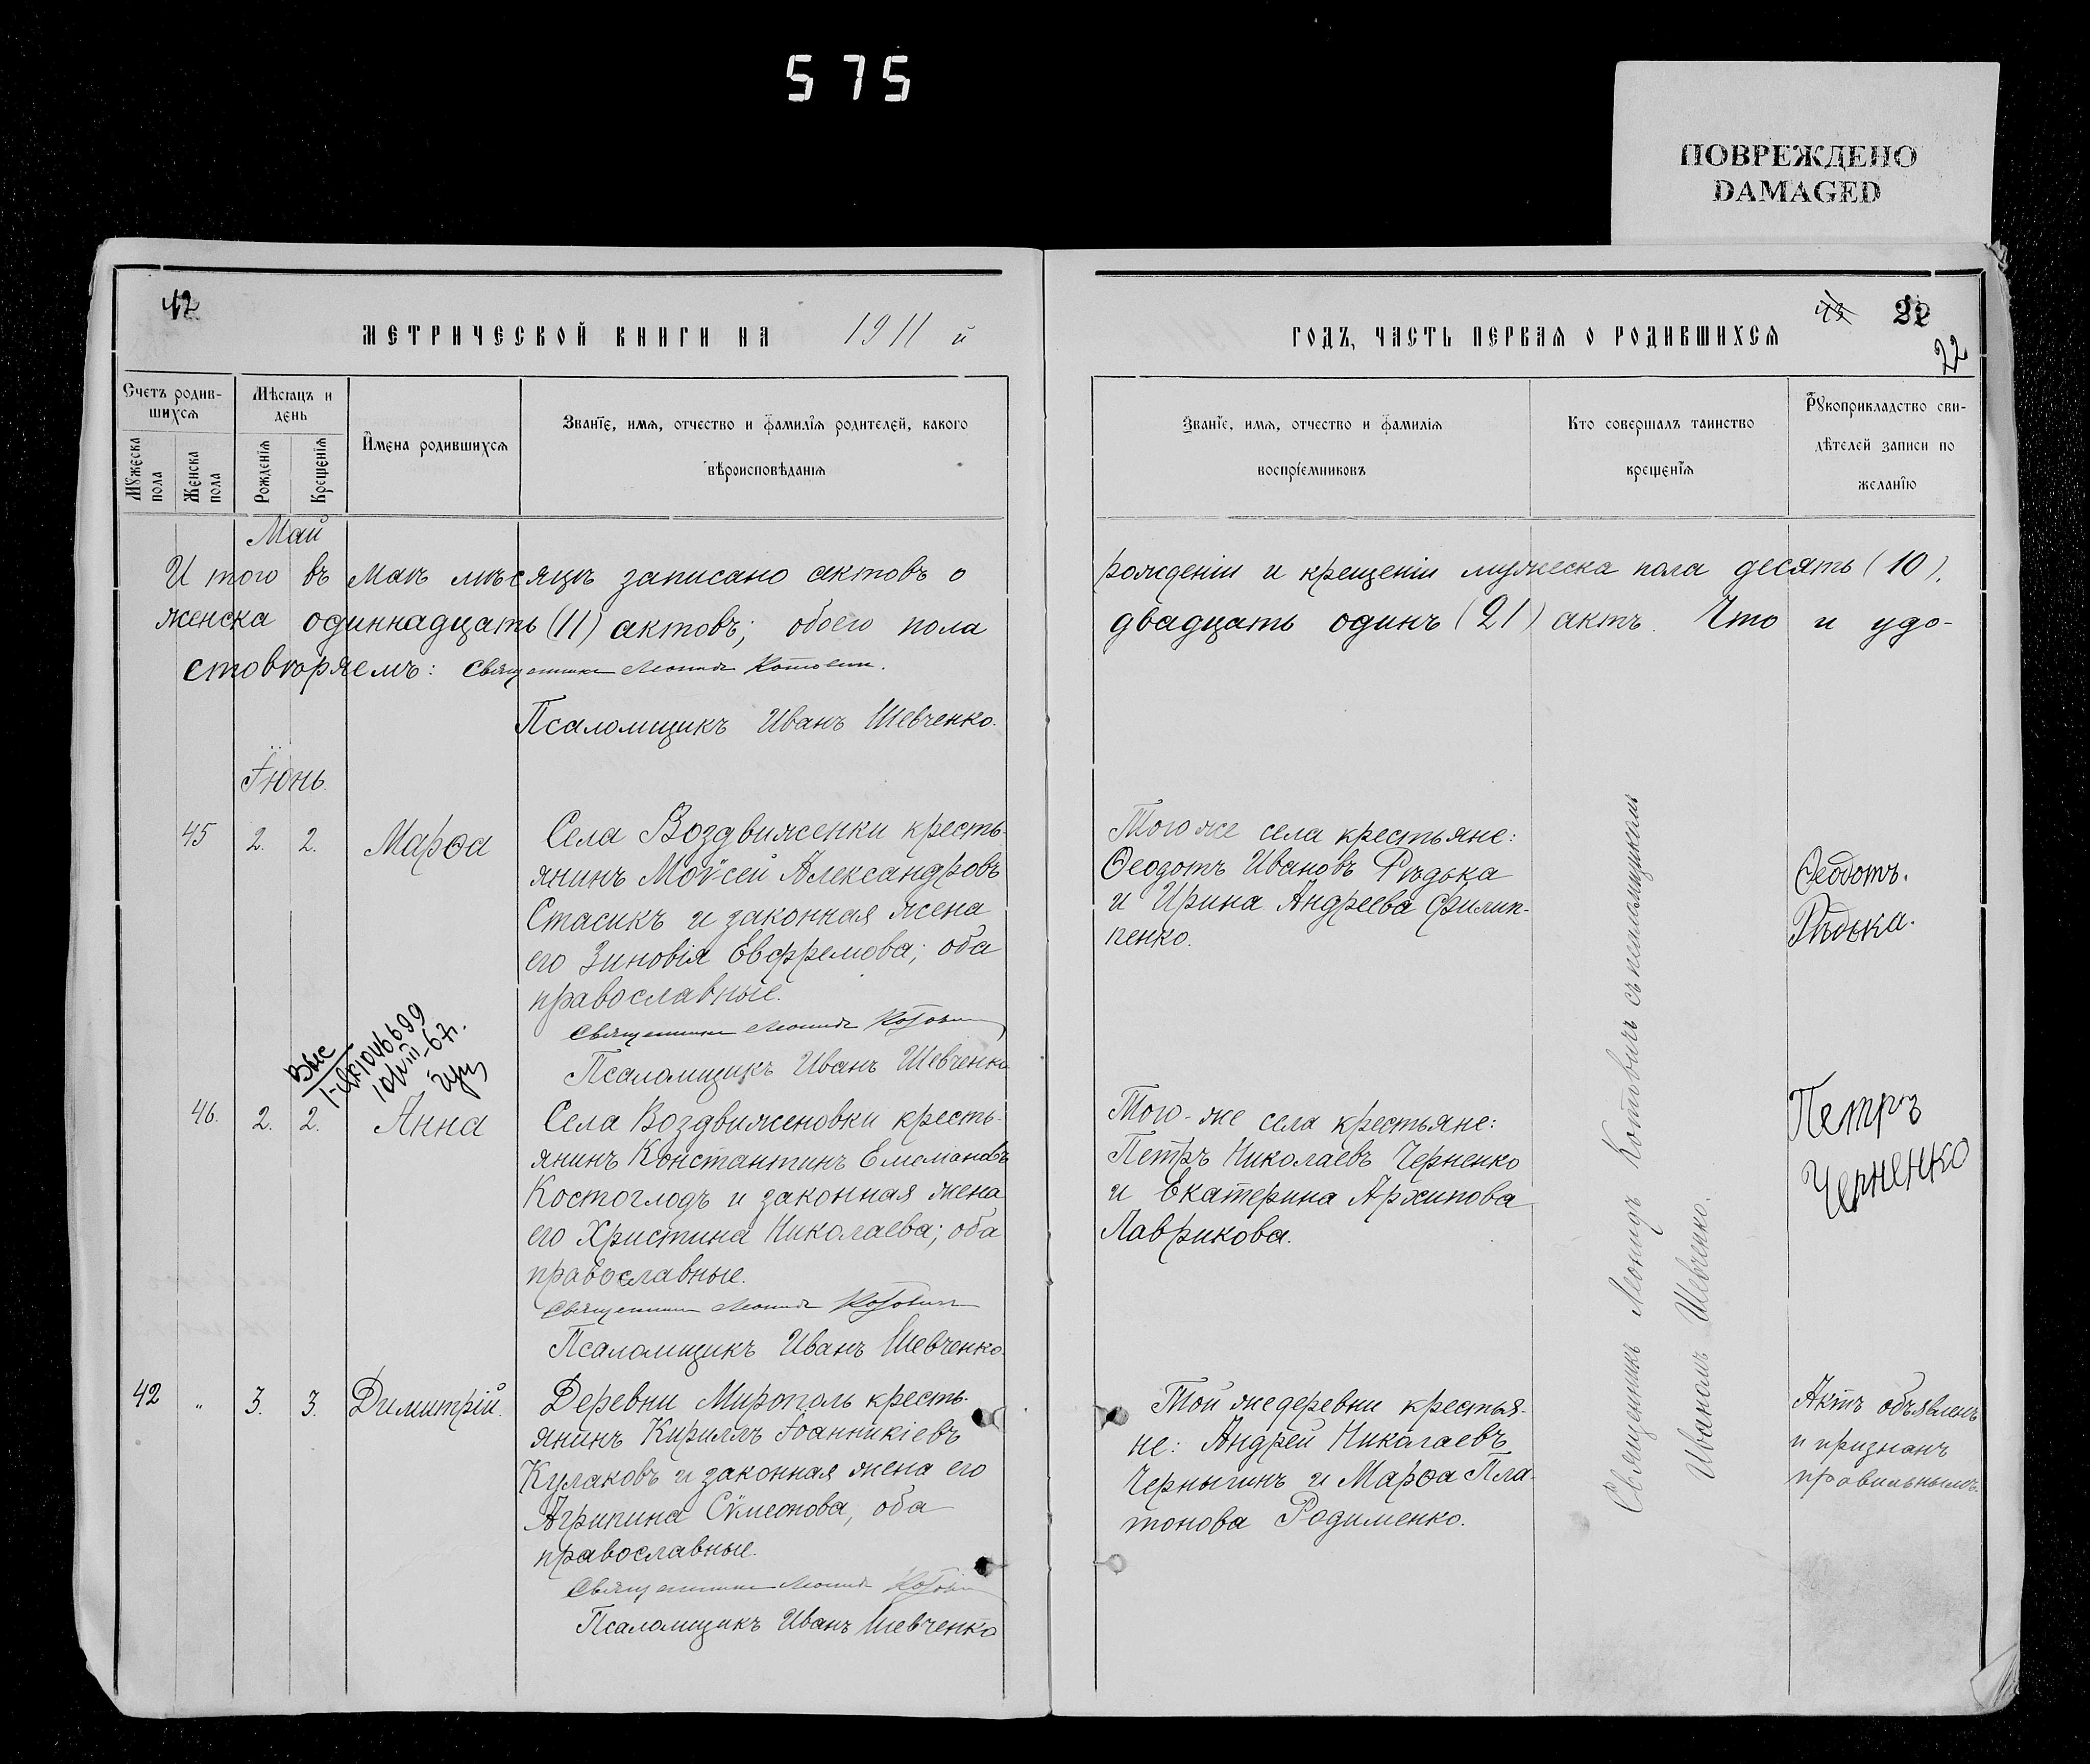 575
ПОВРЕЖДЕНО
DAMAGED
42
МЕТРИЧЕСКОЙ КНИГИ НА 1911 й
ГОДЪ, ЧАСТЬ ПЕРВАЯ О РОДИВШИХСЯ
43
22
Счетъ родив-
шихся
Мужеска пола
Женска пола
Мѣсяцъ и
день
Рожденія
Крещенія
Имена родившихся
Званіе, имя, отчество и фамилія родителей, какого
вѣроисповѣданія
Званіе, имя, отчество и фамилія
воспріемниковъ
Кто совершалъ таинство
крещенія
Рукоприкладство сви-
дѣтелей записи по
желанію
Май
И того въ маѣ мѣсяцѣ записано актовъ о рожденіи и крещеніи мужеска пола десять (10),
женска одиннадцать (11) актовъ; обоего пола двадцать одинъ (21) актъ. Что и удо-
стовѣряемъ: Священникъ Леонидъ Котовичъ.
Псаломщикъ Иванъ Шевченко.
Іюнь.
45 2. 2. Марѳа
Села Воздвиженки кресть-
янинъ Моѵсей Александровъ
Стасикъ и законная жена
его Зиновія Евфремова; оба
православные.
Священникъ Леонидъ Котовичъ
Псаломщикъ Иванъ Шевченко
Того же села крестьяне:
Ѳеодотъ Ивановъ Рѣдька
и Ирина Андреева Филип-
пенко.
Ѳеодотъ.
Рѣдька.
46. 2. 2. Анна
Села Воздвиженовки кресть-
янинъ Константинъ
Костоглодъ и законная жена
его Христина Николаева; оба
православные.
Священникъ Леонидъ Котовичъ
Псаломщикъ Иванъ Шевченко.
Того-же села крестьяне:
Петръ Николаевъ Черненко
и Екатерина Архипова
Лаврикова.
Петръ
Черненко
42 " 3. 3. Димитрій.
Деревни Мирополь кресть-
янинъ Кириллъ Іоанникіевъ
Кулаковъ и законная жена его
Агрипина Сѵмеонова, оба
православные.
Священникъ Леонидъ Котовичъ
Псаломщикъ Иванъ Шевченко
Той же деревни крестья-
не: Андрей Николаевъ
Чернигинъ и Марѳа Пла-
тонова Родименко.
Актъ объявленъ
и признанъ
правильнымъ.
Священникъ Леонидъ Котовичъ съ псаломщикомъ
Иваномъ Шевченко.